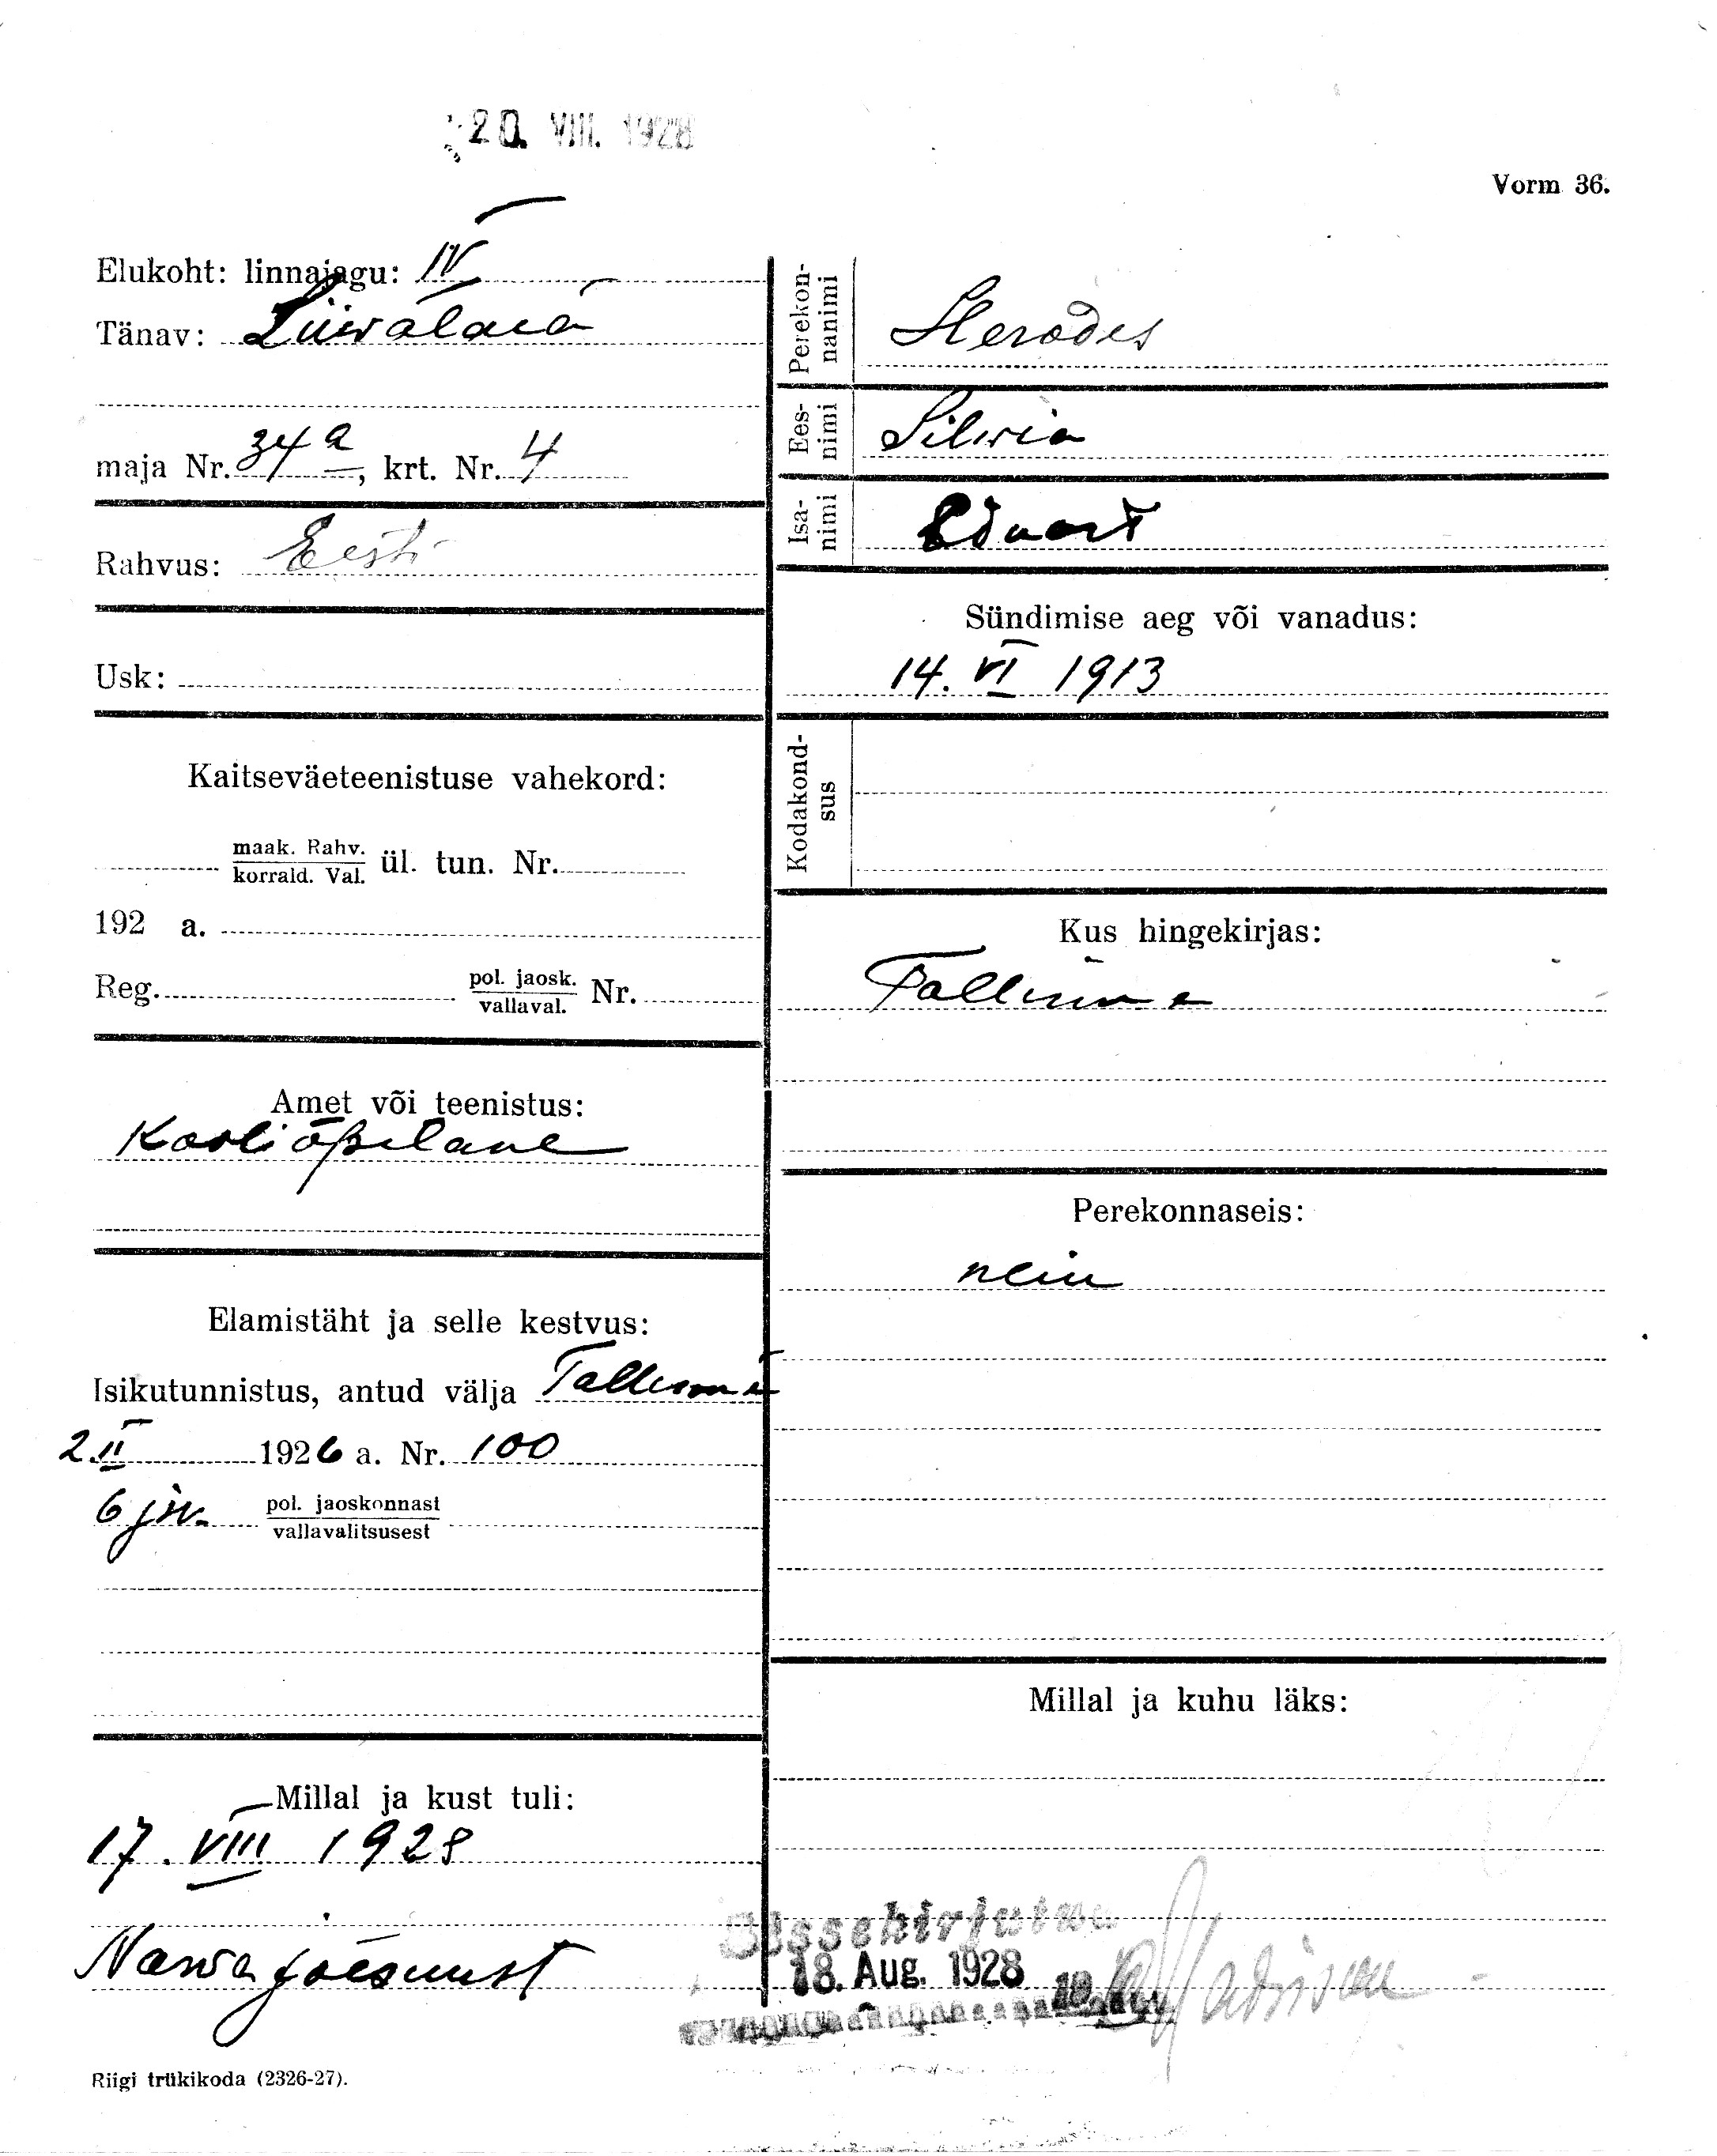 20. VIII. 1928
Vorm 36.
Elukoht: linnajagu: IV
Tänav: Liiwalaia
maja Nr. 34 a, krt. Nr. 4
Rahvus: Eesti
Usk:
Kaitseväeteenistuse vahekord:
maak. Rahv. korrald. Val. ül. tun. Nr.
192 a.
Reg. pol. jaosk. vallaval. Nr.
Amet või teenistus:
Kooliõpilane
Elamistäht ja selle kestvus:
Isikutunnistus, antud välja Tallinna
2. II 1926 a. Nr. 100
6 jsk. pol. jaoskonnast
vallavalitsusest
Millal ja kust tuli:
17. VIII 1928
Narva jõesuust
Riigi trükikoda (2326-27).
Perekon-
nanimi
Herodes
Ees-
nimi
Silvia
Isa-
nimi
Eduart
Sündimise aeg või vanadus:
14. VI 1913
Kodakond-
sus
Kus hingekirjas:
Tallinna
Perekonnaseis:
neiu
Millal ja kuhu läks:
Sissekirjutatud
18. Aug. 1928